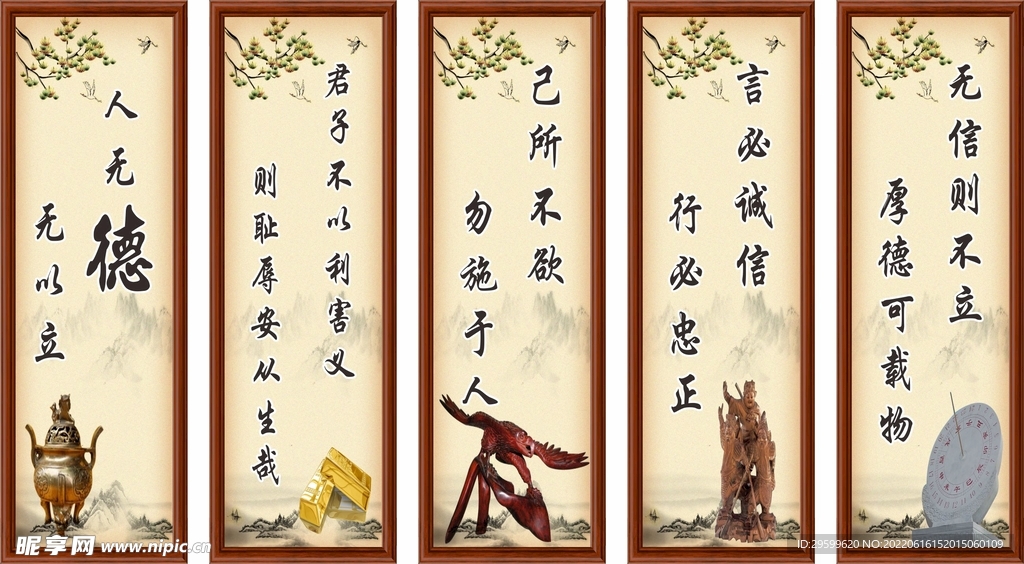 人无德
无以立
君子不以利害义
则耻辱安从生哉
己所不欲
勿施于人
言必诚信
行必忠正
无信则不立
厚德可载物
昵享网 www.nipic.cn
ID:29599620 NO:20220616152015060109